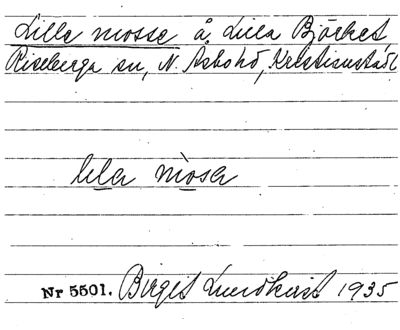 Lille mosse å Lilla Björket
Riseberga sn, N. Åsbo hd, Kristianstads l
lela mosa
Nr 5501. Birgit Lundkvist 1935